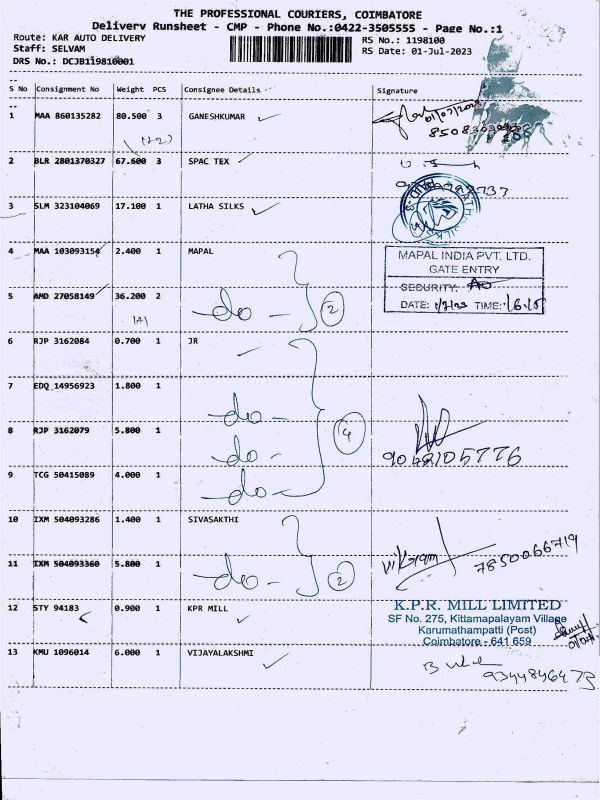 THE PROFESSIONAL COURIERS, COIMBATORE
Delivery Runsheet - CMP - Phone No.:0422-3505555 - Page No.:1
Route: KAR AUTO DELIVERY
RS No.: 1198100
Staff: SELVAM
RS Date: 01-Jul-2023
DRS No.: DCJB119810001
S No Consignment No Weight PCS Consignee Details Signature
1 MAA 860135282 80.500 3 GANESHKUMAR
2 BLR 2801370327 67.600 3 SPAC TEX
3 SLM 323104069 17.100 1 LATHA SILKS
4 MAA 103093154 2.400 1 MAPAL
MAPAL INDIA PVT. LTD.
GATE ENTRY
SECURITY:
DATE: 1/7/23 TIME: 16.15
5 AMD 27058149 36.200 2 do - 2
6 RJP 3162084 0.700 1 JR
7 EDQ 14956923 1.800 1 do -
8 RJP 3162079 5.800 1 do - 4
9 TCG 50415089 4.000 1 do -
10 IXM 504093286 1.400 1 SIVASAKTHI
11 IXM 504093360 5.800 1 do - 2
vikram 7850066719
12 STY 94183 0.900 1 KPR MILL
K.P.R. MILL LIMITED
SF No. 275, Kittamapalayam Village
Karumathampatti (Post)
Coimbatore - 641 659
13 KMU 1096014 6.000 1 VIJAYALAKSHMI